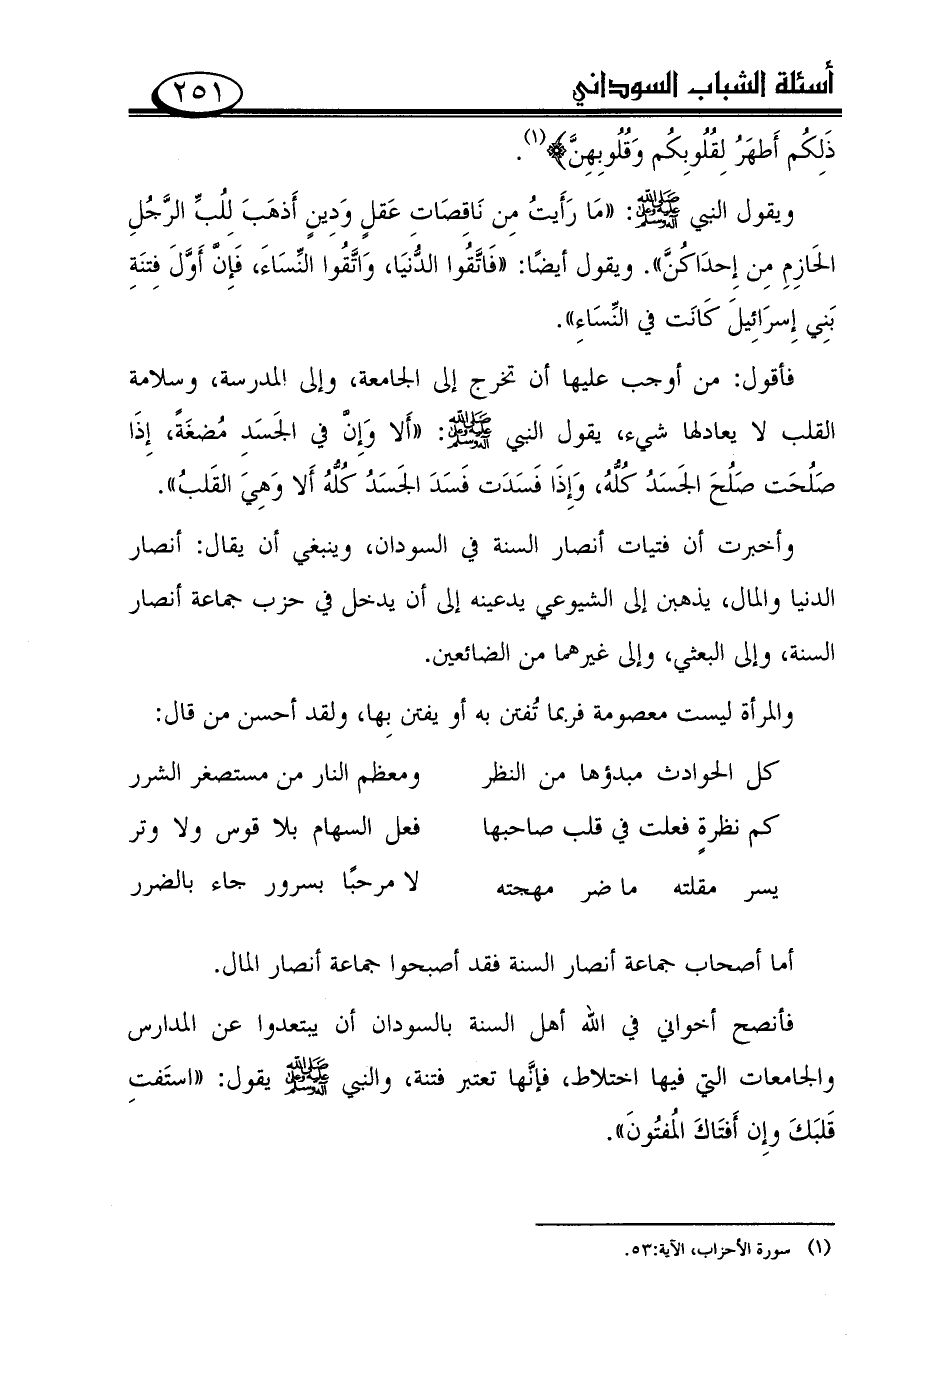 أسئلة الشباب السوداني ٢٥١
ذَلِكُم أَطهَرُ لِقُلُوبِكُم وَقُلُوبِهِنَّ﴾(١).
ويقول النبي ﷺ: «مَا رَأَيتُ مِن نَاقِصَاتِ عَقلٍ وَدِينٍ أَذهَبَ لِلُبِّ الرَّجُلِ
الحَازِمِ مِن إِحدَاكُنَّ». ويقول أيضًا: «فَاتَّقُوا الدُّنيَا، وَاتَّقُوا النِّسَاءَ، فَإِنَّ أَوَّلَ فِتنَةِ
بَنِي إِسرَائِيلَ كَانَت فِي النِّسَاءِ».
فأقول: من أوجب عليها أن تخرج إلى الجامعة، وإلى المدرسة، وسلامة
القلب لا يعادلها شيء، يقول النبي ﷺ: «أَلا وَإِنَّ فِي الجَسَدِ مُضغَةً، إِذَا
صَلُحَت صَلُحَ الجَسَدُ كُلُّهُ، وَإِذَا فَسَدَت فَسَدَ الجَسَدُ كُلُّهُ أَلا وَهِيَ القَلبُ».
وأخبرت أن فتيات أنصار السنة في السودان، وينبغي أن يقال: أنصار
الدنيا والمال، يذهبن إلى الشيوعي يدعينه إلى أن يدخل في حزب جماعة أنصار
السنة، وإلى البعثي، وإلى غيرهما من الضائعين.
والمرأة ليست معصومة فربما تُفتن به أو يفتن بِها، ولقد أحسن من قال:
كل الحوادث مبدؤها من النظر ومعظم النار من مستصغر الشرر
كم نظرةٍ فعلت في قلب صاحبها فعل السهام بلا قوس ولا وتر
يسر مقلته ما ضر مهجته لا مرحبًا بسرور جاء بالضرر
أما أصحاب جماعة أنصار السنة فقد أصبحوا جماعة أنصار المال.
فأنصح أخواني في الله أهل السنة بالسودان أن يبتعدوا عن المدارس
والجامعات التي فيها اختلاط، فإنَّها تعتبر فتنة، والنبي ﷺ يقول: «استَفتِ
قَلبَكَ وإِن أَفتَاكَ المُفتُونَ».
(١) سورة الأحزاب، الآية:٥٣.